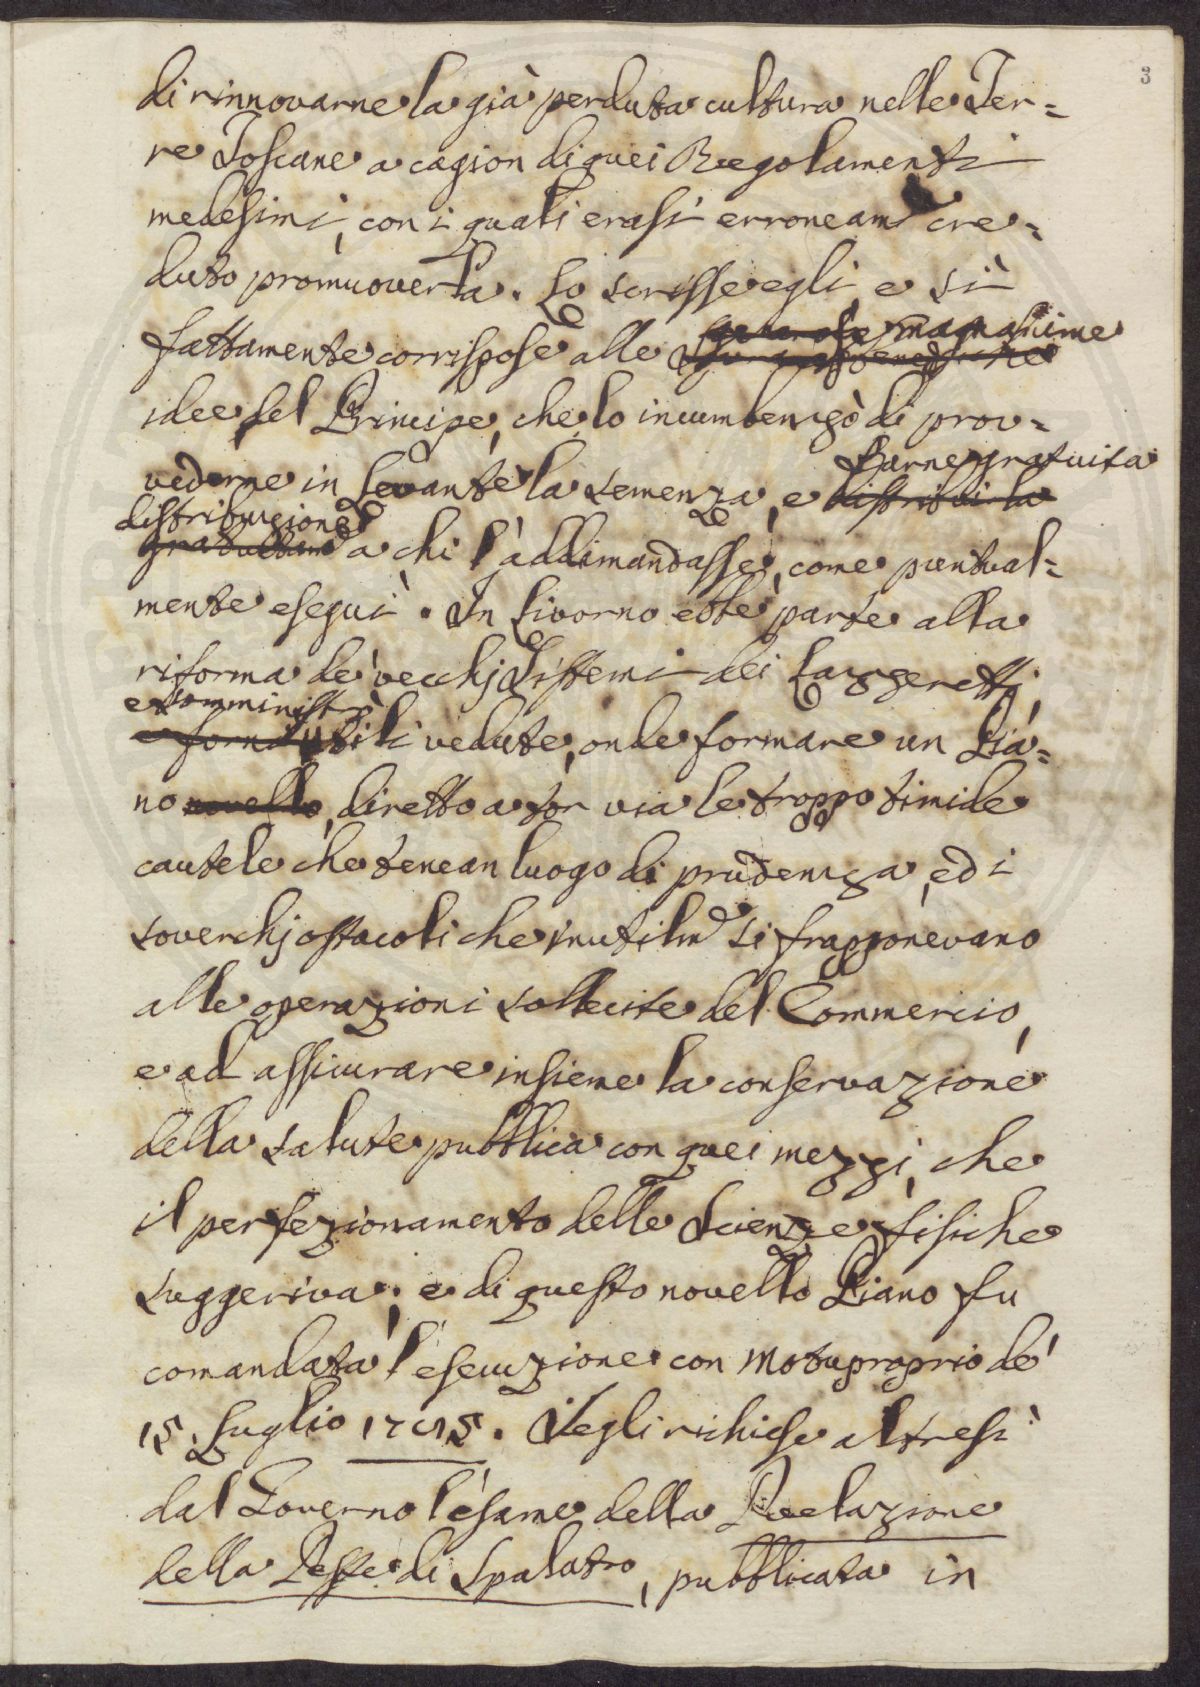 3
di rinnovarne la già perduta cultura nelle Ter=
re Toscane a cagion di quei Regolamenti
medesimi, con i quali erasi erroneam.e cre=
duto promuoverla. Lo scrisse egli, e sì
magnanime
fattamente corrispose alle
idee del Principe, che lo incumbenzò di prov=
Farne gratuita
vederne in Levante la semenza, e distribuirla
distribuzione
gratuitam.e a chi l'addimandasse, come puntual=
mente eseguì. In Livorno ebbe parte alla
riforma de' vecchj Sistemi dei Lazzeretti,
e somministrò
e fornì utili vedute, onde formare un Pia=
no novello, diretto a tor via le troppo timide
cautele che tenean luogo di prudenza, ed i
soverchj ostacoli che inutilm.e si frapponevano
alle operazioni sollecite del Commercio,
e ad assicurare insieme la conservazione
della salute pubblica con quei mezzi, che
il perfezionamento delle Scienze fisiche
suggeriva; e di questo novello Piano fu
comandata l'esecuzione con Motuproprio de'
15. Luglio 1785. Segli richiese altresì
dal Governo l'esame della Relazione
della Peste di Spalatro, pubblicata in